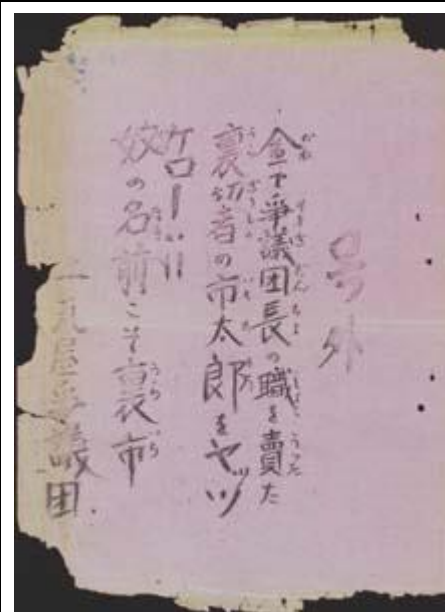 号外
金で争議団長の職を賣た
裏切者の市太郎をヤッツ
ケロー!!
奴の名前こそ裏市
争議団.